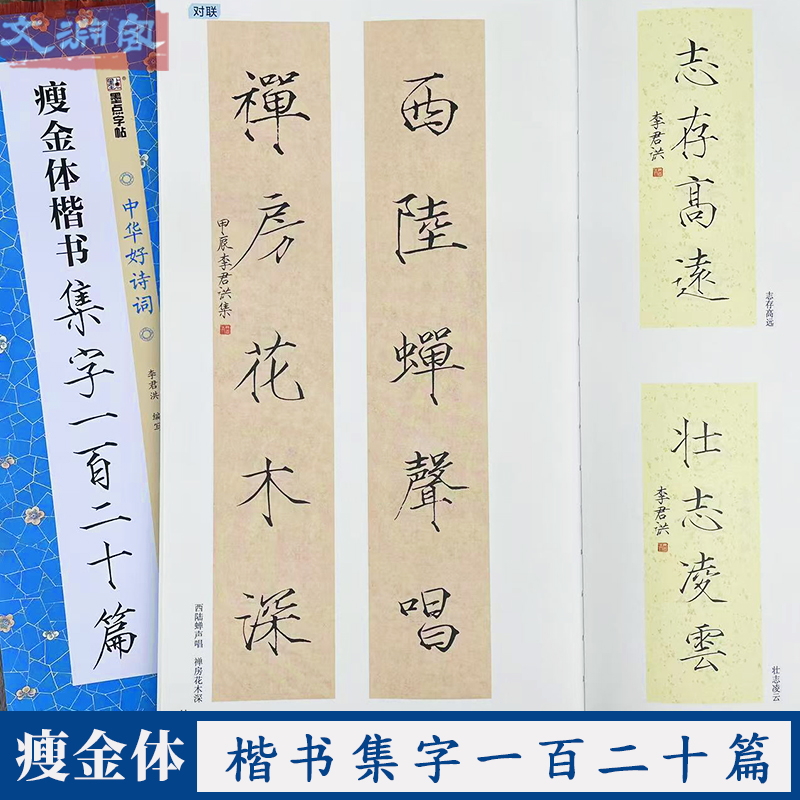 文渊阁
墨点字帖
瘦金体楷书
集字一百二十篇
中华好诗词
李君洪 编写
对联
西陸蟬聲唱
禪房花木深
甲辰李君洪集
西陆蝉声唱 禅房花木深
志存高遠
李君洪
志存高远
壮志凌雲
李君洪
壮志凌云
瘦金体 楷书集字一百二十篇